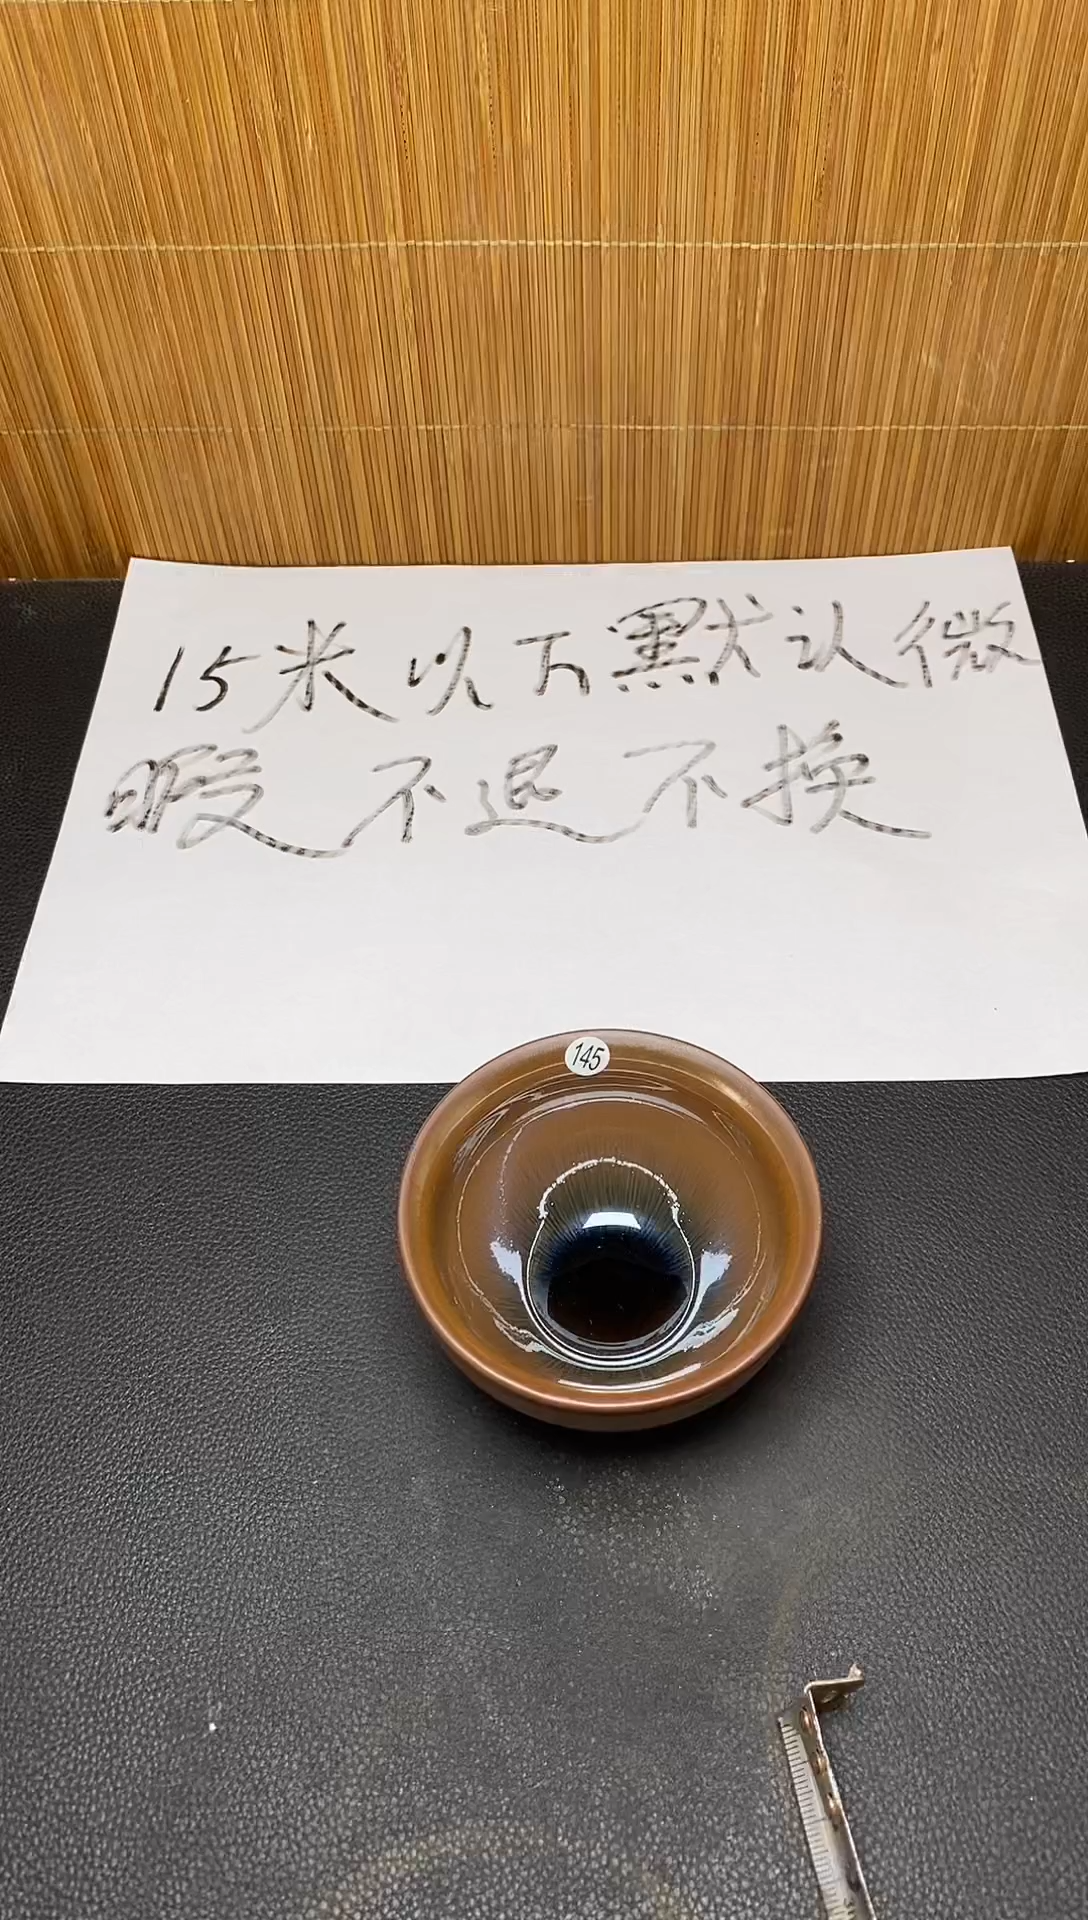 15米以下默认微
暇不退不换
145